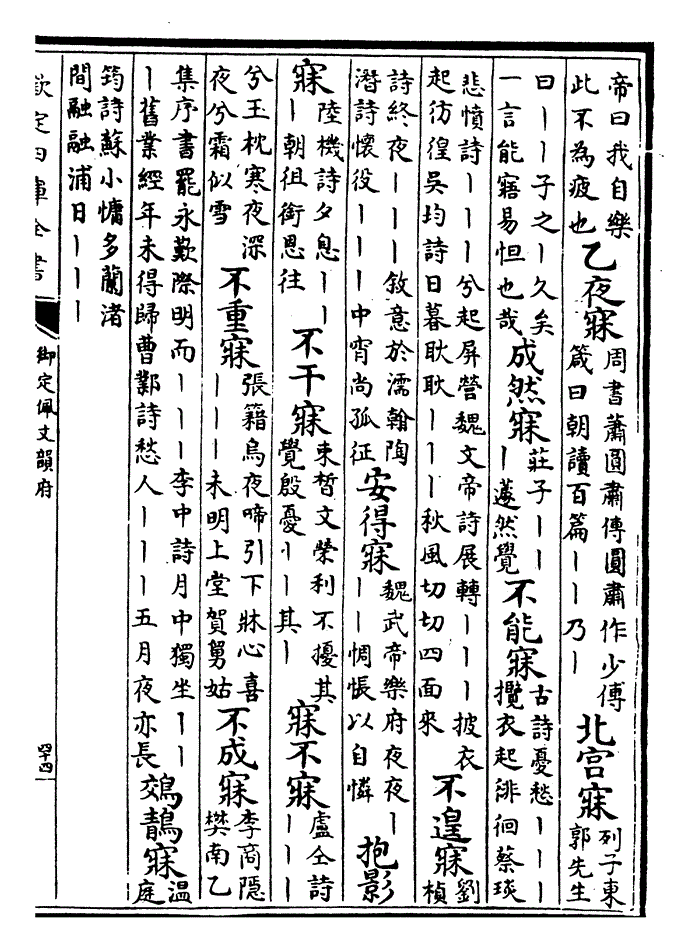 帝曰我自樂此不為疲也乙夜寐周書蕭圓肅傳圓肅作少傅箴曰朝讀百篇丨丨乃丨北宫寐列子東郭先生
曰丨丨子之丨久矣一言能寤易怛也哉成然寐莊子丨丨丨蘧然覺不能寐古詩憂愁丨丨丨攬衣起徘徊蔡琰
悲憤詩丨丨丨兮起屏營魏文帝詩展轉丨丨丨披衣起彷徨吴均詩日暮耿耿丨丨丨秋風切切四面來不遑寐劉楨
詩終夜丨丨丨敘意於濡翰陶潛詩懷役丨丨丨中宵尚孤征安得寐魏武帝樂府夜夜丨丨丨惆悵以自憐抱影
寐陸機詩夕息丨丨丨朝徂銜思往不干寐束晳文榮利不擾其覺殷憂丨丨其丨寐不寐盧仝詩丨丨丨
兮玉枕寒夜深夜兮霜似雪不重寐張籍烏夜啼引下牀心喜丨丨丨未明上堂賀舅姑不成寐李商隱樊南乙
集序書罷永歎際明而丨丨丨李中詩月中獨坐丨丨丨舊業經年未得歸曹鄴詩愁人丨丨丨五月夜亦長鵁鶄寐温庭
筠詩蘇小慵多蘭渚間融融浦日丨丨丨
欽定四庫全書
御定佩文韻府
四十四